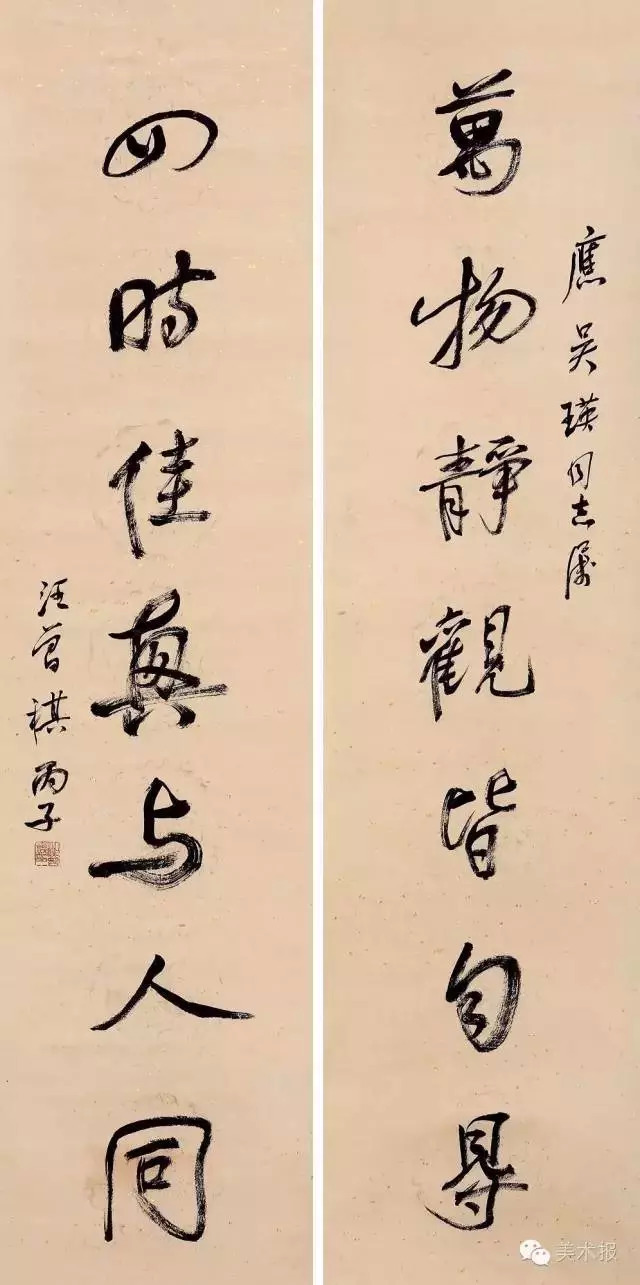 應吴瑛同志属
萬物靜觀皆自㝵
四時佳興与人同
汪曾祺丙子
美术报